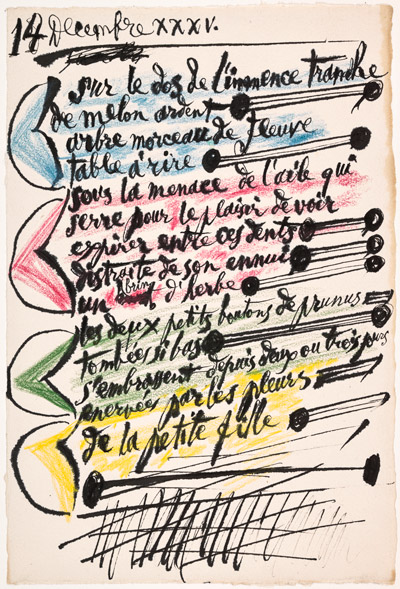 14 Decembre XXXV.
sur le dos de l'immence tranche
de melon ardent
arbre morceau de fleuve
table à rire
sous la menace de l'aile qui
serre pour le plaisir de voir
expirer entre ces dents
distraite de son ennui
un bring d'herbe
les deux petits boutons de prunus
tombées si bas
s'embrassent depuis deux ou trois jours
enervées par les pleurs
de la petite fille